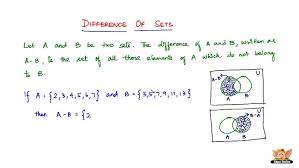 DIFFERENCE OF SETS
Let A and B be two sets. The difference of A and B, written as
A-B, is the set of all those elements of A which do not belong
to B.
If A = {2,3,4,5,6,7} and B = {3,5,7,9,11,13}
then A-B = {2
A-B
U
A B
U
B-A
A B